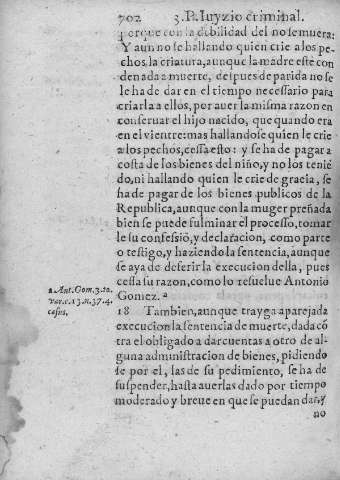 702 3.P. Iuyzio criminal.
porque con la debilidad del no se muera:
Y aun no se hallando quien crie a los pe-
chos, la criatura, aunque la madre esté con
denada a muerte, despues de parida no se
le ha de dar en el tiempo necessario para
criarla a ellos, por auer la misma razon en
conseruar el hijo nacido, que quando era
en el vientre: mas hallandose quien le crie
a los pechos, cessa esto: y se ha de pagar a
costa de los bienes del niño, y no los tenié
do, ni hallando quien le crie de gracia, se
ha de pagar de los bienes publicos de la
Republica, aunque con la muger preñada
bien se puede fulminar el processo, tomar
le su confessió, y declaracion, como parte
o testigo, y haziendo la sentencia, aunque
se aya de deferir la execucion della, pues
cessa su razon, como lo resuelue Antonio
Gomez. a
a. Ant. Gom. 3. to.
var. c. 13. n. 37. 4.
casus,
18 Tambien, aunque trayga aparejada
execucion la sentencia de muerte, dada có
tra el obligado a dar cuentas a otro de al-
guna administracion de bienes, pidiendo
se por el, las de su pedimiento, se ha de
suspender, hasta auerlas dado por tiempo
moderado y breue en que se puedan dar, y
no